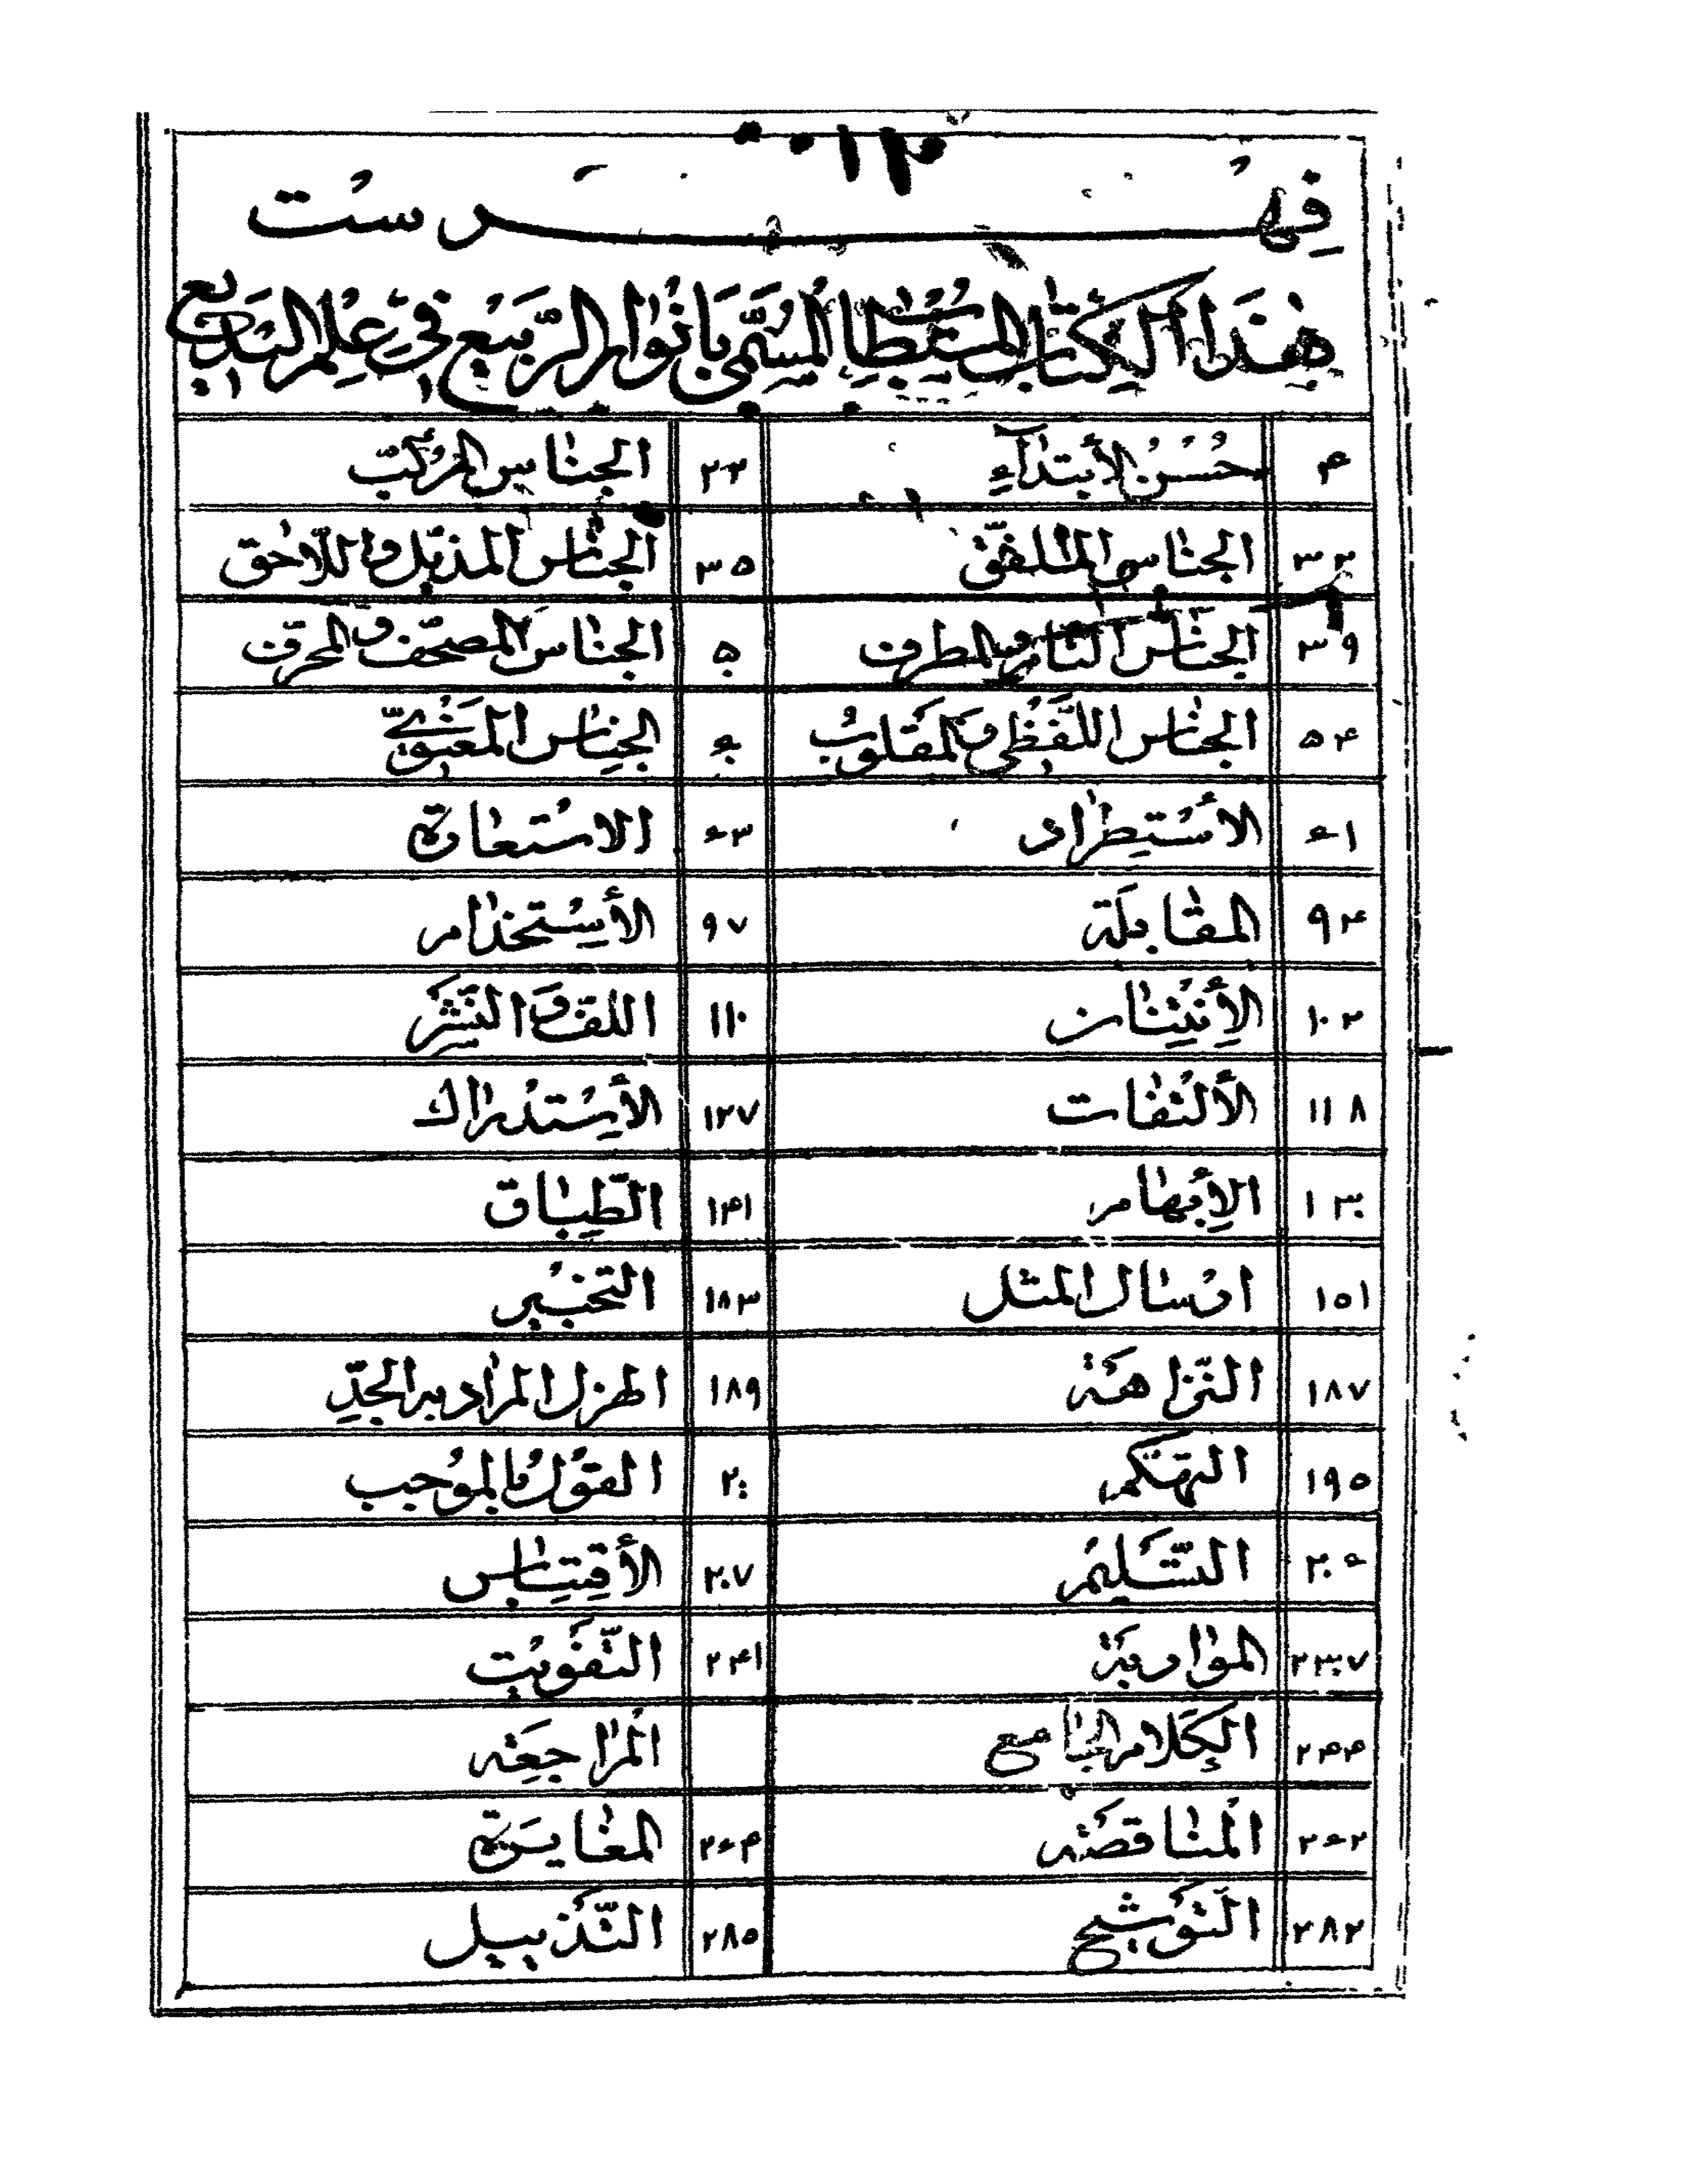 فِهْرست
هٰذَا الْكِتَابِ الْمُسْتَطَابِ الْمُسَمّٰى بِاَنْوارِ الرَّبيعِ فِي عِلْمِ الْبَدِيعِ
۴ حُسْنُ الأبتداءِ ۲۳ الجناس المركّب
۳۲ الجناس الملفّق ۳۵ الجناس المذيّل واللّاحق
۳۹ الجناس التامّ والمطرف ۵۰ الجناس المصحّف والمحرّف
۵۴ الجناس اللَّفظي والمقلوب ۶۰ الجناس المعنويّ
۶۱ الأستطراد ۶۳ الاستعارة
۹۴ المقابلة ۹۷ الأستخدام
۱۰۲ الأفتنان ۱۱۰ اللف والنّشر
۱۱۸ الألتفات ۱۲۷ الأستدراك
۱۳۰ الإبهام ۱۴۱ الطّباق
۱۵۱ ارسال المثل ۱۸۳ التخيير
۱۸۷ النّزاهة ۱۸۹ الهزل المراد به الجدّ
۱۹۵ التهكّم ۲۰۰ القول بالموجب
۲۰۶ التّسليم ۲۰۷ الأقتباس
۲۳۷ المواربة ۲۴۱ التّفويت
۲۴۴ الكلام الجامع المراجعة
۲۶۲ المناقضة ۲۶۴ المغايرة
۲۸۲ التّوشيح ۲۸۵ التّذييل